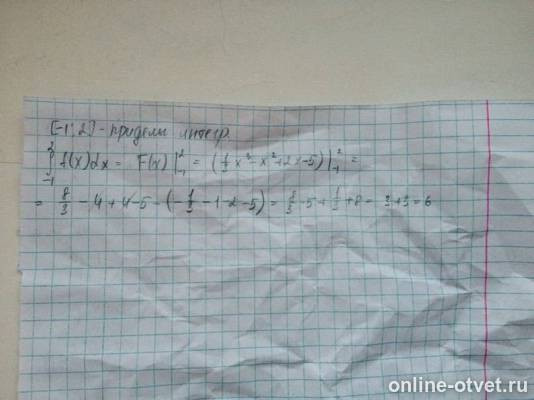 [-1; 2] - придели интегр.
∫₋₁² f(x)dx = F(x) |₋₁² = (1/3 x³ - x² + 2x - 5) |₋₁² =
= 8/3 - 4 + 4 - 5 - (-1/3 - 1 - 2 - 5) = 8/3 - 5 + 1/3 + 8 = 3 + 3 = 6
online-otvet.ru